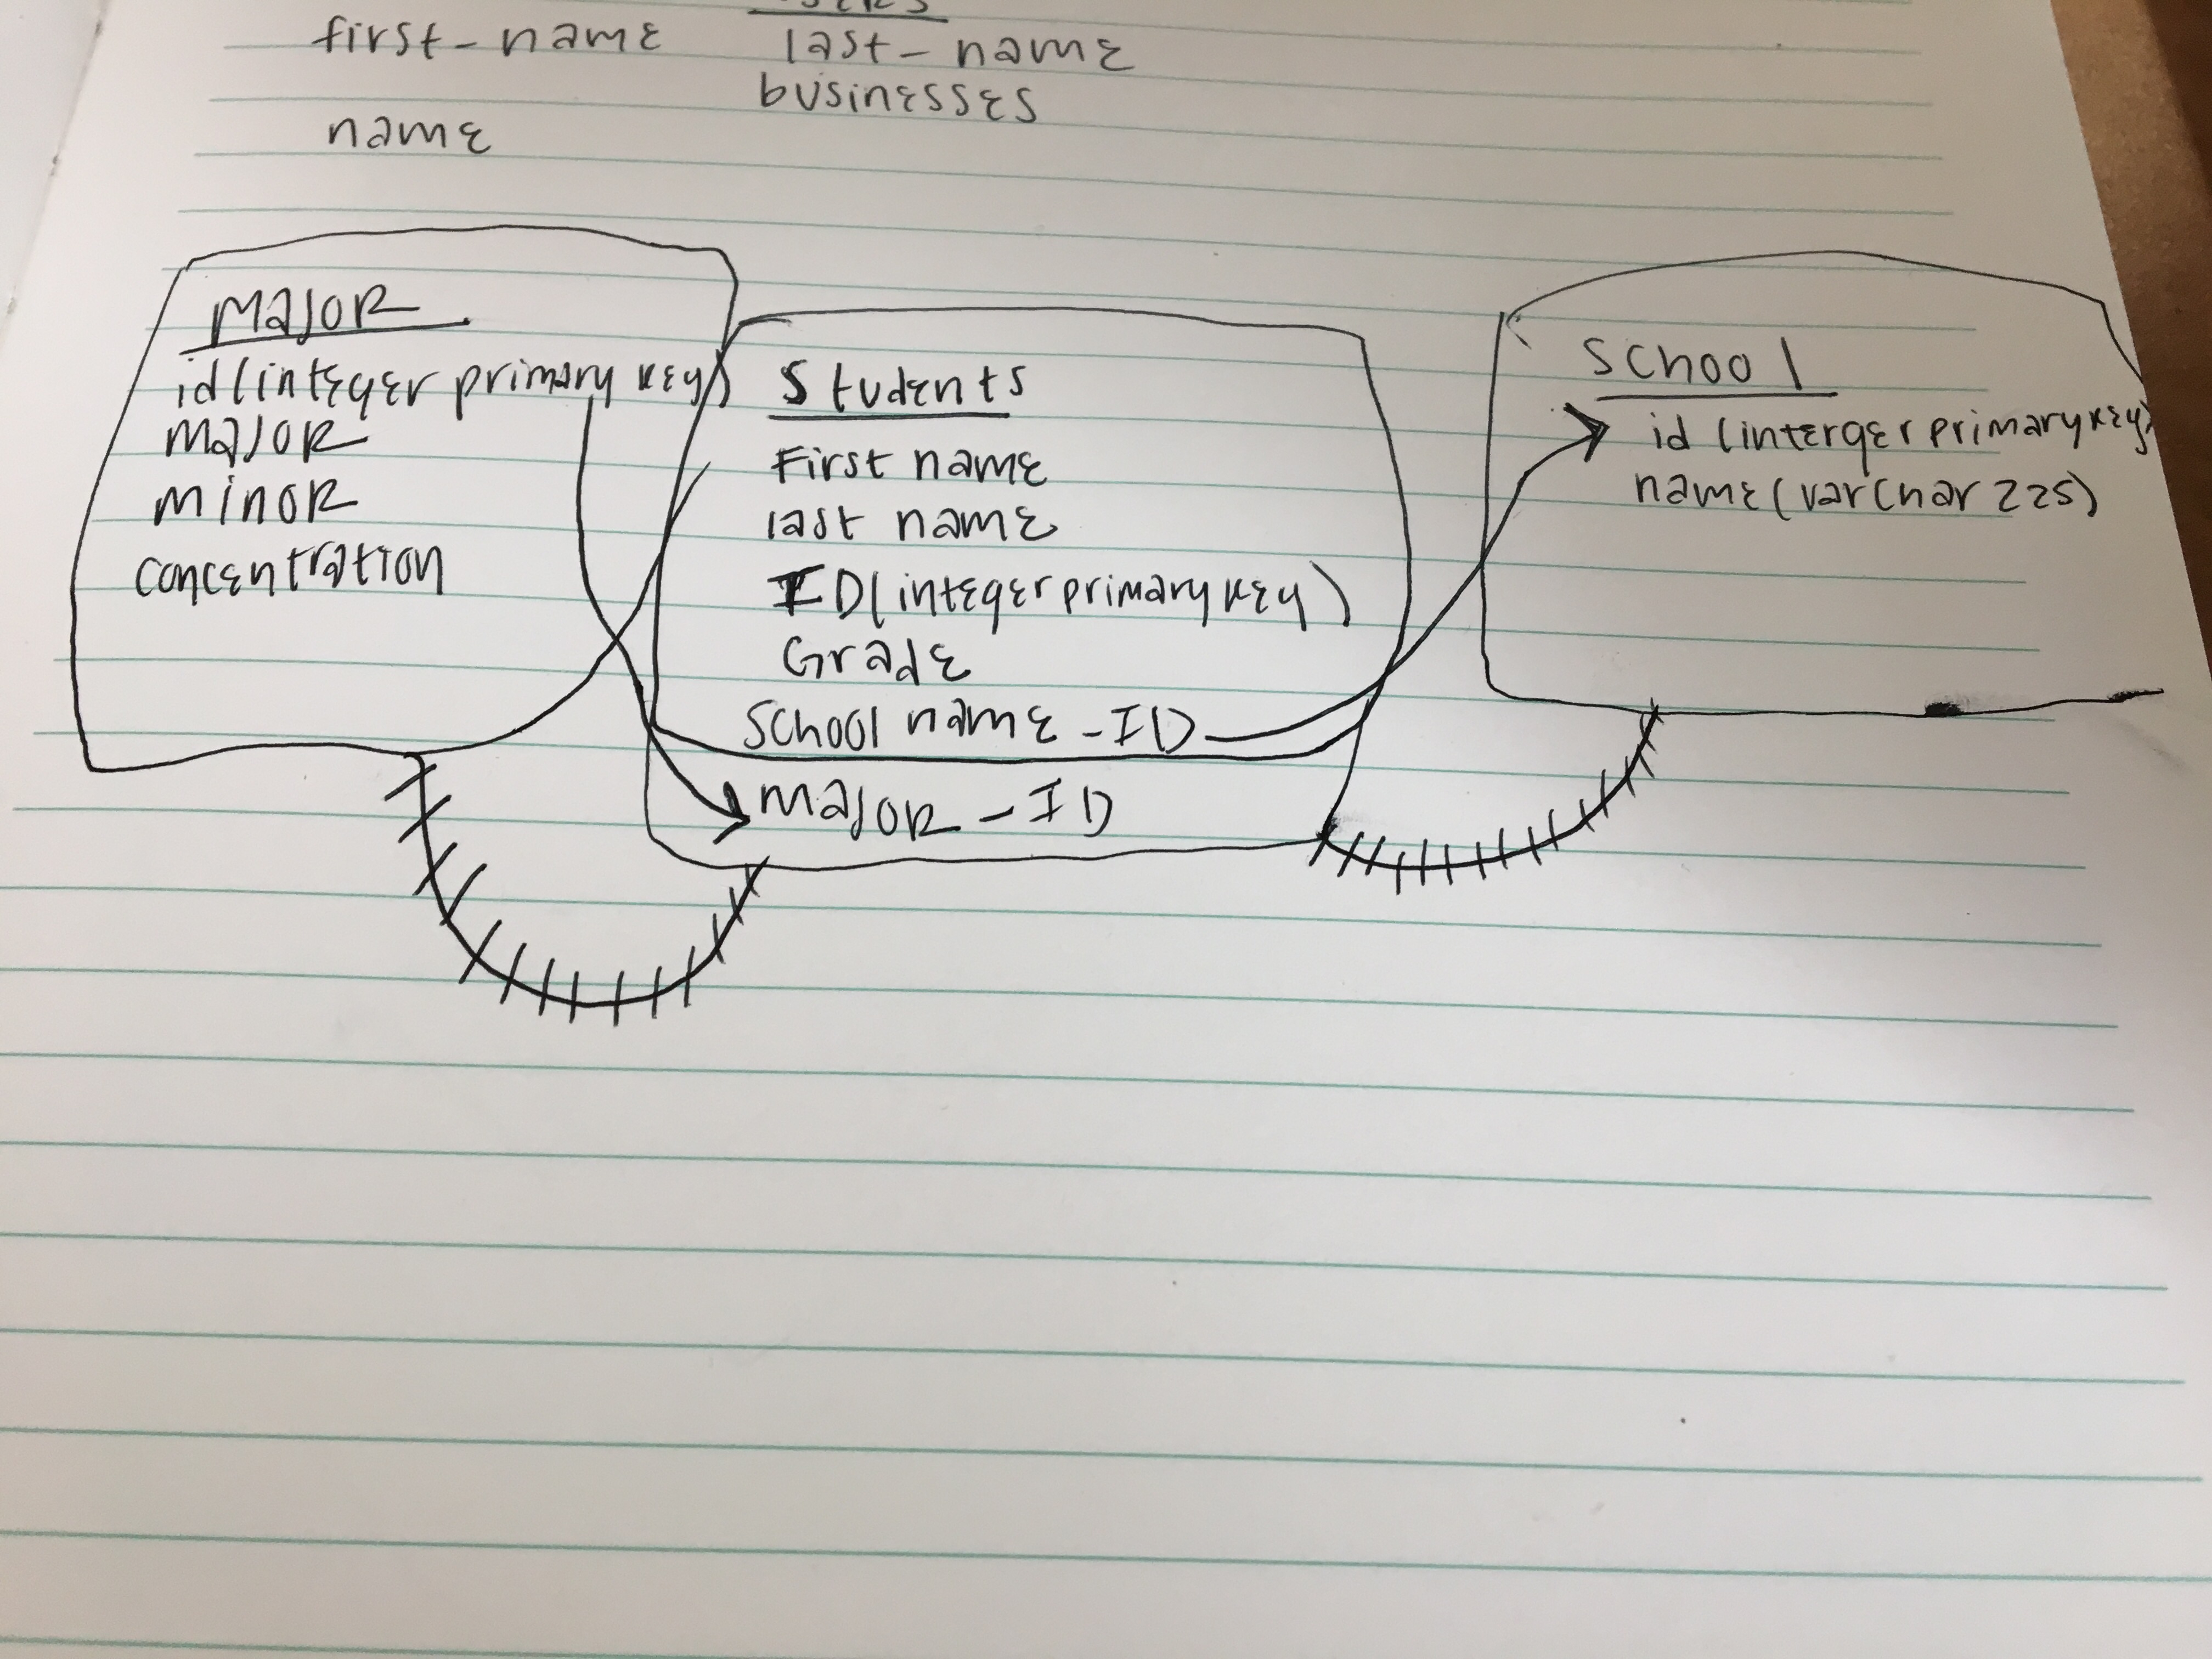 first-name last-name
businesses
name
Major
id (integer primary key)
Major
minor
concentration
Students
First name
last name
ID (integer primary key)
Grade
School name - ID
Major - ID
School
id (interger primary key)
name (varchar 225)